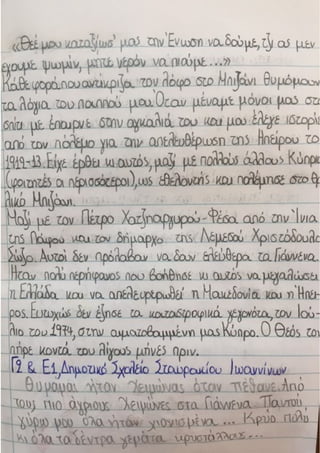 «Θεέ μου καταξίωσ' μας την Ένωση να δούμε, τζι ας μεν
έχουμε ψωμίν, μήτε νερόν να πιούμε...»
Κάθε φορά που αντικρίζω τον λόφο στο Μπιζάνι θυμάμαι
τα λόγια του παππού μου. Όταν μέναμε μόνοι μας στο
σπίτι με έπαιρνε στην αγκαλιά του και μου έλεγε ιστορίες
από τον πόλεμο για την απελευθέρωση της Ηπείρου το
1912-13. Είχε έρθει κι αυτός, μαζί με πολλούς άλλους Κύπριους
(φοιτητές οι περισσότεροι), ως εθελοντής και πολέμησε στο θρυ-
λικό Μπιζάνι.
Μαζί με τον Πέτρο Χατζηαργυρού-Φέσα από την Ίνια
της Πάφου και τον δήμαρχο της Λεμεσού Χριστόδουλο
Σώζο. Αυτοί δεν πρόλαβαν να δουν ελεύθερα τα Γιάννενα.
Ήταν πολύ περήφανος που βοήθησε κι αυτός να μεγαλώσει
η Ελλάδα και να απελευθερωθεί η Μακεδονία και η Ήπει-
ρος. Ευτυχώς δεν έζησε τα καταστροφικά γεγονότα, τον Ιού-
λιο του 1974, στην αιματοβαμμένη μας Κύπρο. Ο Θεός τον
πήρε κοντά του λίγους μήνες πριν.
Γ2 & Ε1, Δημοτικό Σχολείο Σταυρακίου Ιωαννίνων
Θυμάμαι ήταν χειμώνας όταν πέθανε. Από
τους πιο άγριους χειμώνες στα Γιάννενα. Παντού
γύρω μου όλα ήταν χιονισμένα... Κρύο πολύ
κι όλα τα δέντρα γεμάτα κρυστάλλους...